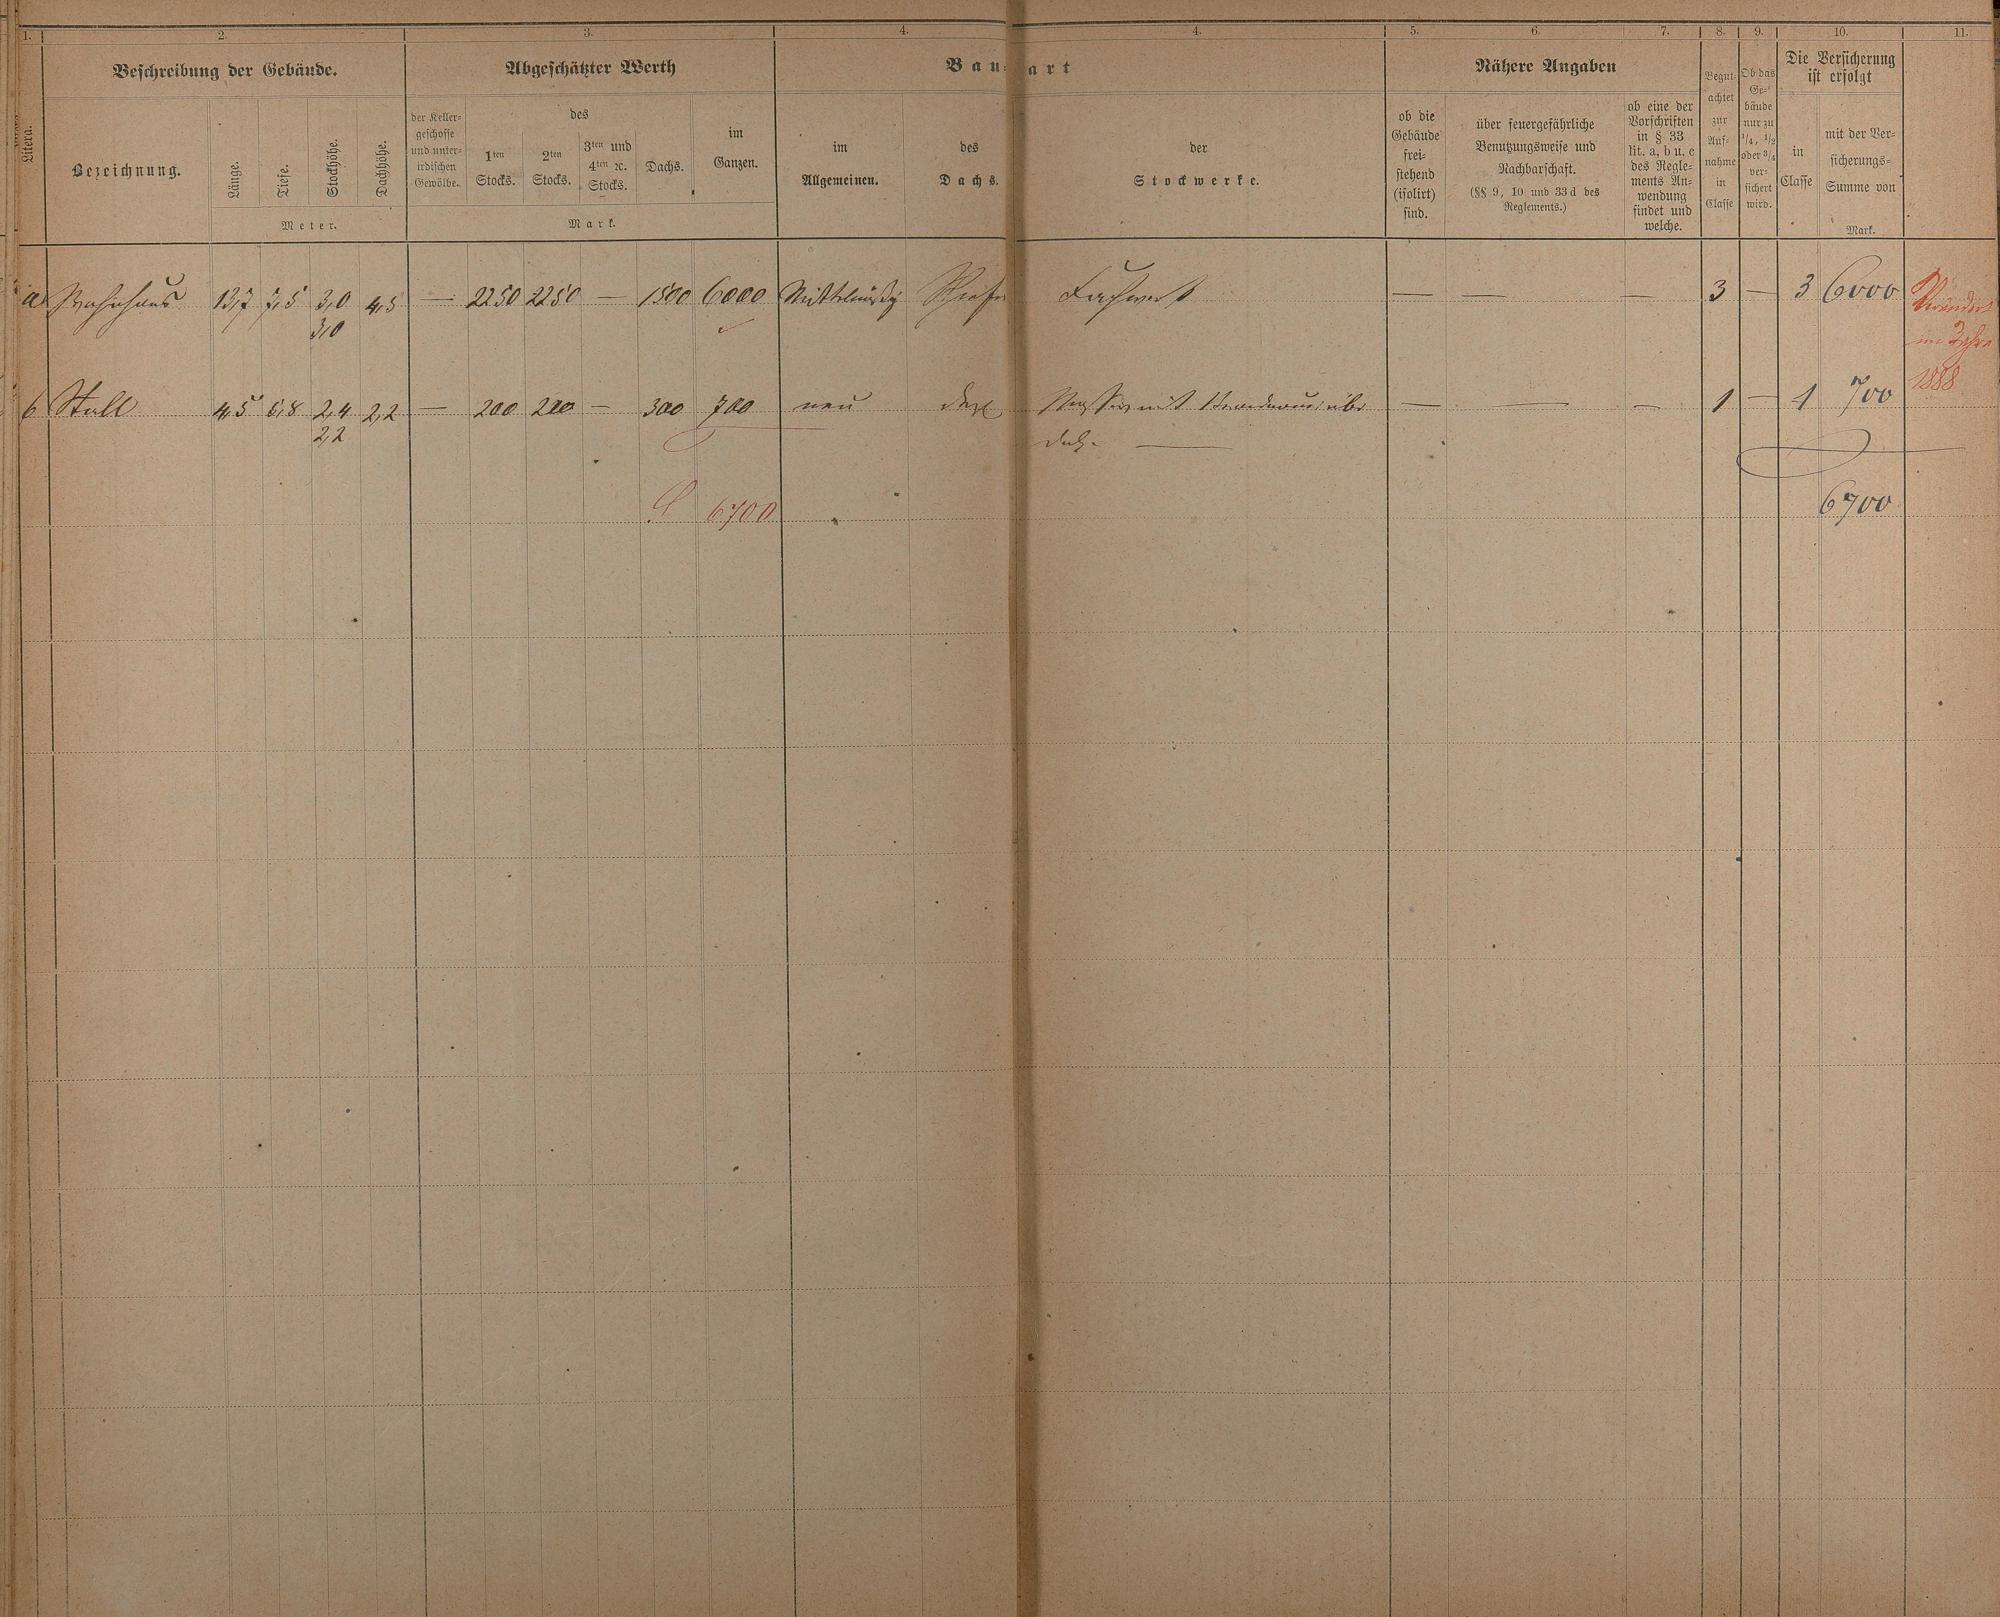 1. 2. 3. 4. 4. 5. 6. 7. 8. 9. 10. 11.
Beschreibung der Gebäude. Abgeschätzter Werth Bau- art Nähere Angaben Die Versicherung
ist erfolgt
Litera.
Bezeichnung.
Länge.
Tiefe.
Stockhöhe.
Dachhöhe.
Meter.
der Keller-
geschosse
und unter-
irdischen
Gewölbe.
des
1ten
Stocks.
2ten
Stocks.
3ten und
4ten ꝛc.
Stocks.
Dachs.
im
Ganzen.
Mark.
im
Allgemeinen.
des
Dachs.
der
Stockwerke.
ob die
Gebäude
frei-
stehend
(isolirt)
sind.
über feuergefährliche
Benutzungsweise und
Nachbarschaft.
(§§ 9, 10 und 33 d des
Reglements.)
ob eine der
Vorschriften
in § 33
lit. a, b u. c
des Regle-
ments An-
wendung
findet und
welche.
Begut-
achtet
zur
Auf-
nahme
in
Classe
Ob das
Ge-
bäude
nur zu
1/4, 1/2
oder 3/4
ver-
sichert
wird.
in
Classe
mit der Ver-
sicherungs-
Summe von
Mark.
a Wohnhaus 13,7 7,5 3,0 4,5 — 2250 2250 — 1500 6000 Mittelmäßig Schiefer Fachwerk — — — 3 — 3 6000 Verändert
3,0 im Jahre
1888
b Stall 4,5 6,8 2,4 2,2 — 200 200 — 300 700 neu desgl Massiv mit Brandmauer über — — — 1 — 1 700
2,2 Dach. —
S. 6700 6700